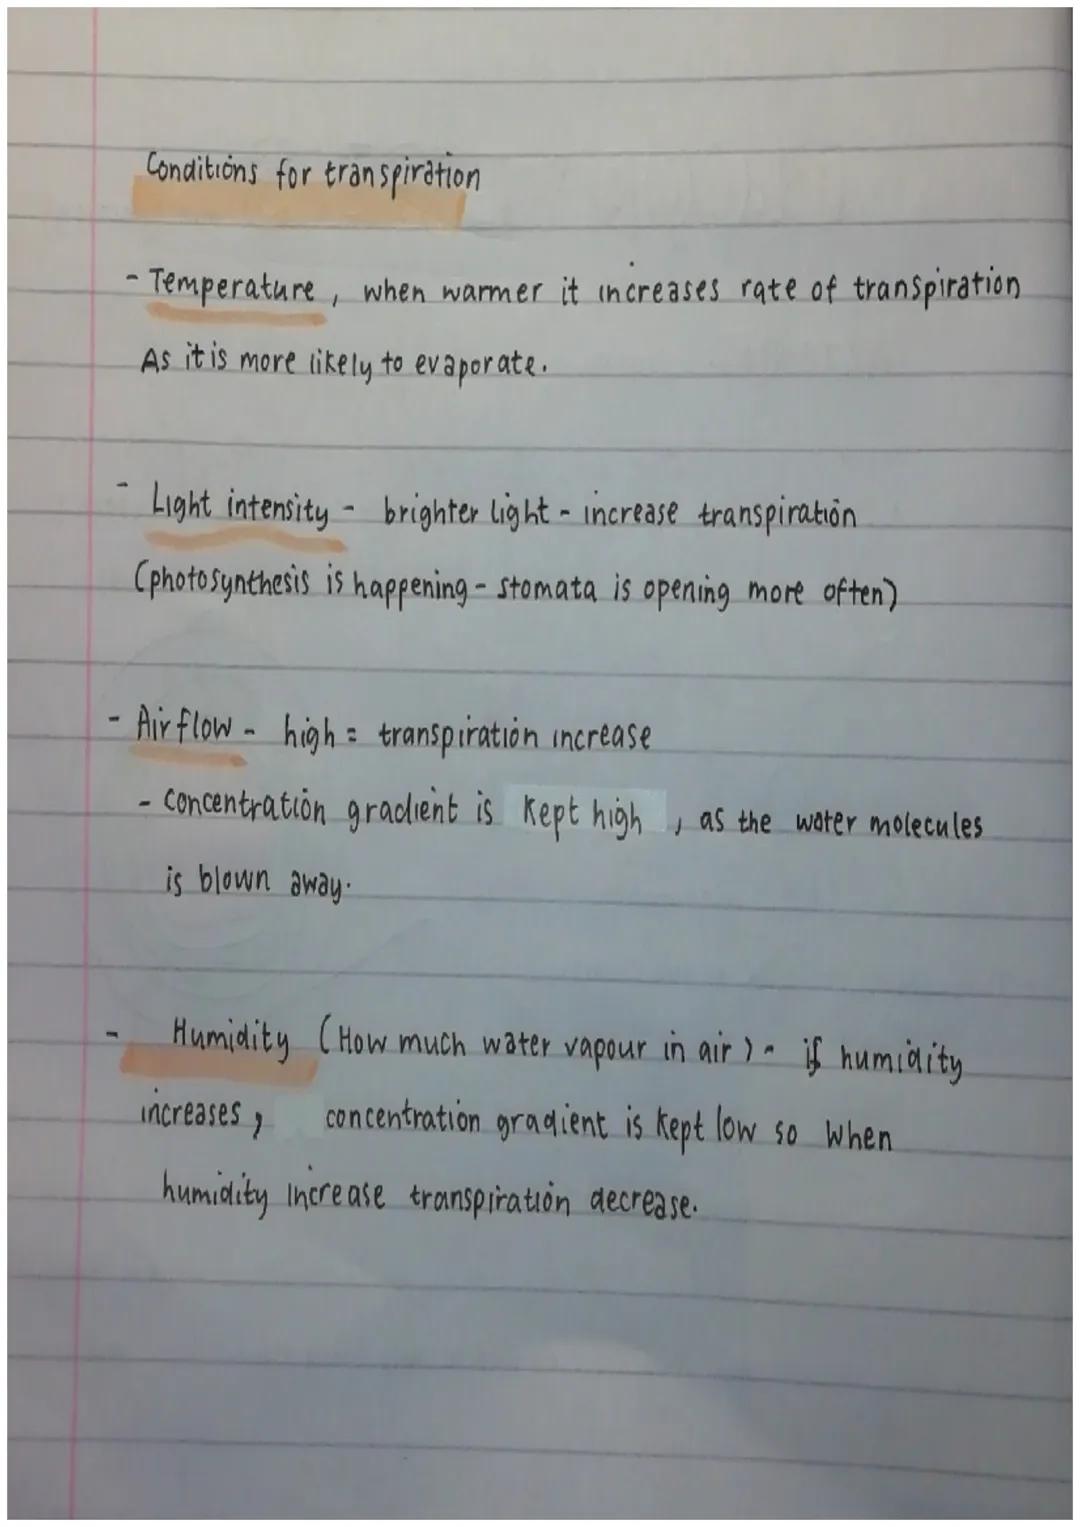 Conditions for transpiration
- Temperature, when warmer it increases rate of transpiration
As it is more likely to evaporate.
- Light intensity - brighter light - increase transpiration
(photosynthesis is happening - stomata is opening more often)
- Air flow - high = transpiration increase
- concentration gradient is kept high, as the water molecules
is blown away.
- Humidity (How much water vapour in air) - if humidity
increases, concentration gradient is kept low so when
humidity increase transpiration decrease.